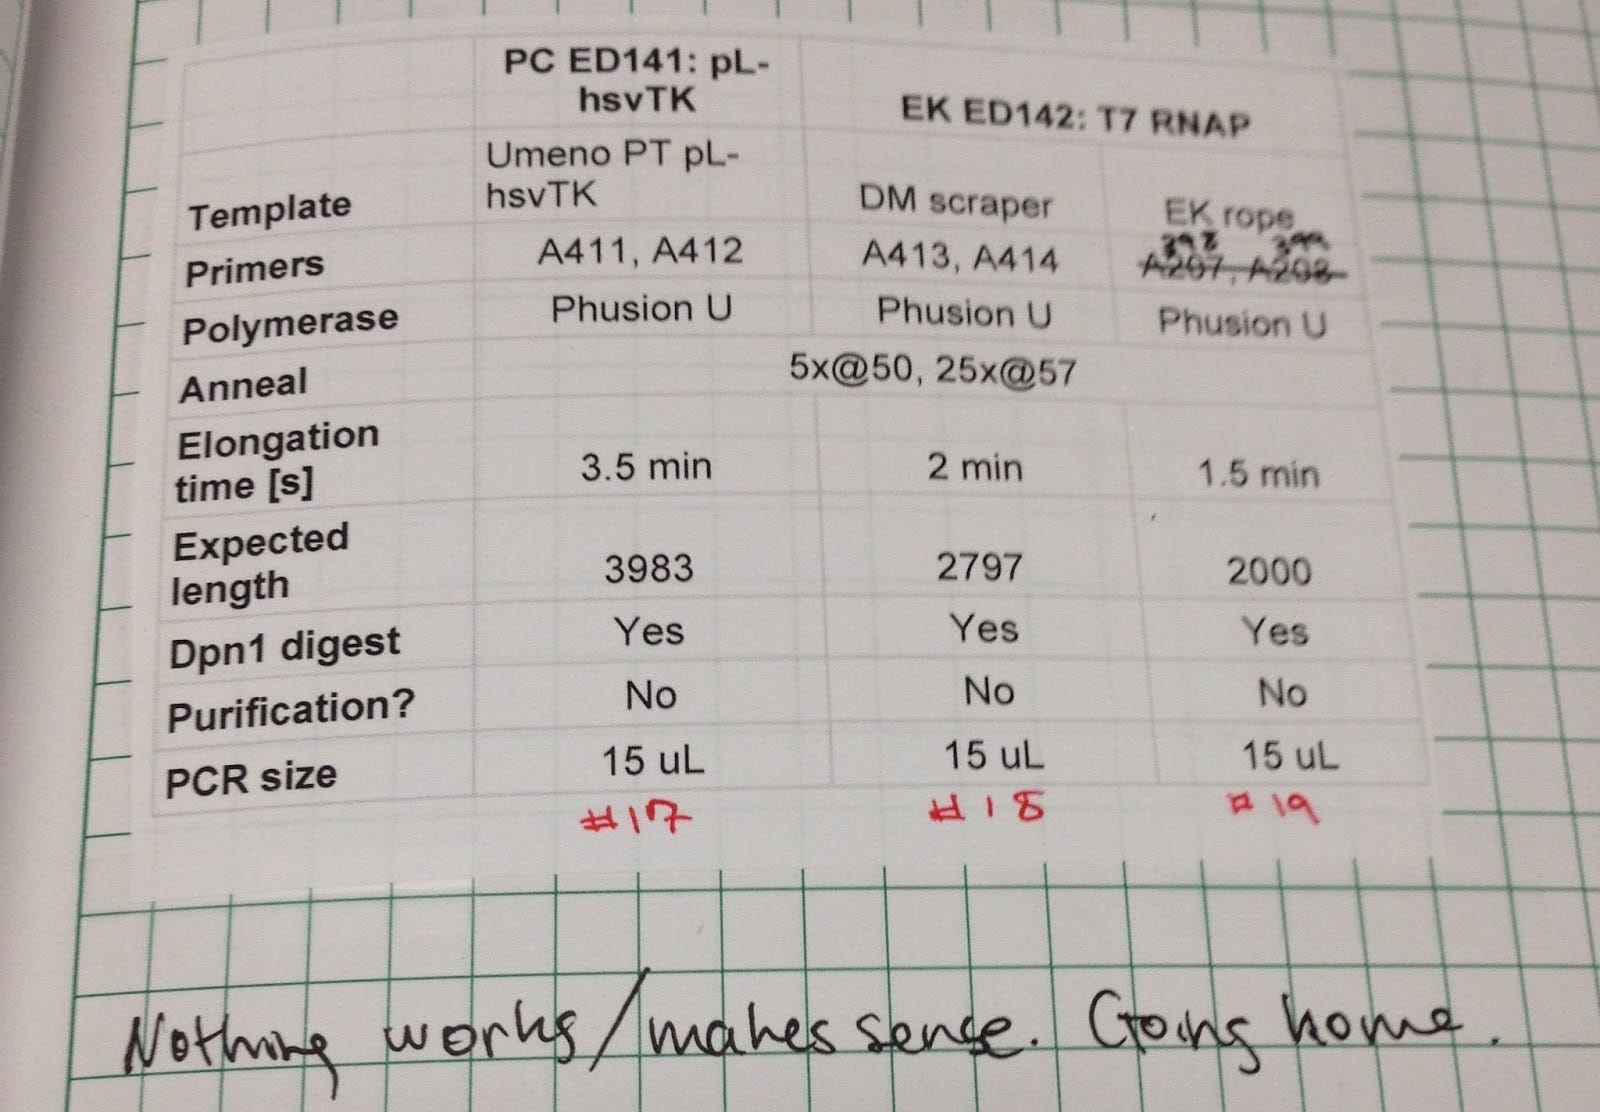 PC ED141: pL-
hsvTK
EK ED142: T7 RNAP
Template
Umeno PT pL-
hsvTK
DM scraper
EK rope
398 399
Primers
A411, A412
A413, A414
A207, A208
Polymerase
Phusion U
Phusion U
Phusion U
Anneal
5x@50, 25x@57
Elongation
time [s]
3.5 min
2 min
1.5 min
Expected
length
3983
2797
2000
Dpn1 digest
Yes
Yes
Yes
Purification?
No
No
No
PCR size
15 uL
15 uL
15 uL
#17
#18
#19
Nothing works/makes sense. Going home.